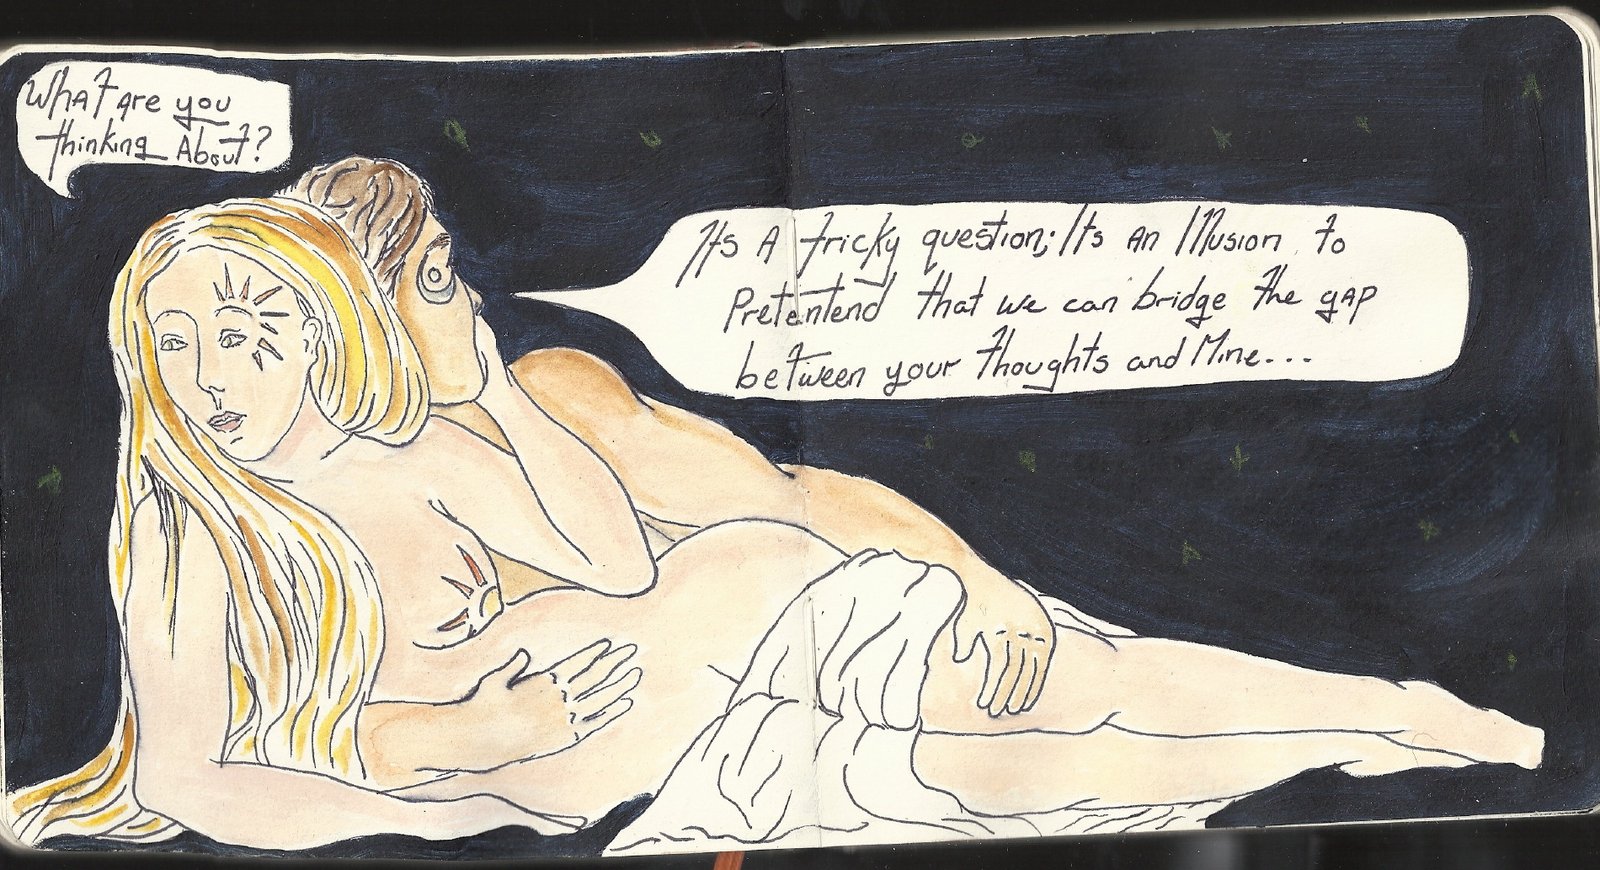 What are you
thinking About?
Its A tricky question; Its An Illusion to
Pretentend that we can bridge the gap
between your thoughts and Mine...